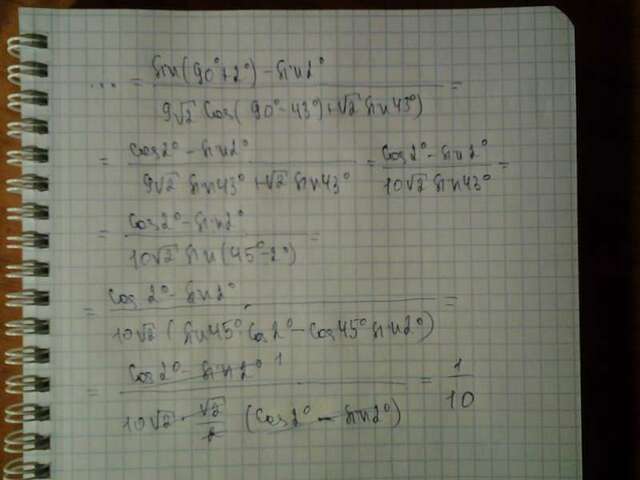 ... = (sin(90°+2°) - sin2°) / (9√2 cos(90°-43°)+√2 sin43°) =
= (cos2° - sin2°) / (9√2 sin43° + √2 sin43°) = (cos2° - sin2°) / (10√2 sin43°) =
= (cos2° - sin2°) / (10√2 sin(45°-2°)) =
= (cos2° - sin2°) / (10√2 (sin45° cos2° - cos45° sin2°)) =
= (cos2° - sin2° 1) / (10√2 · √2/2 (cos2° - sin2°)) = 1/10